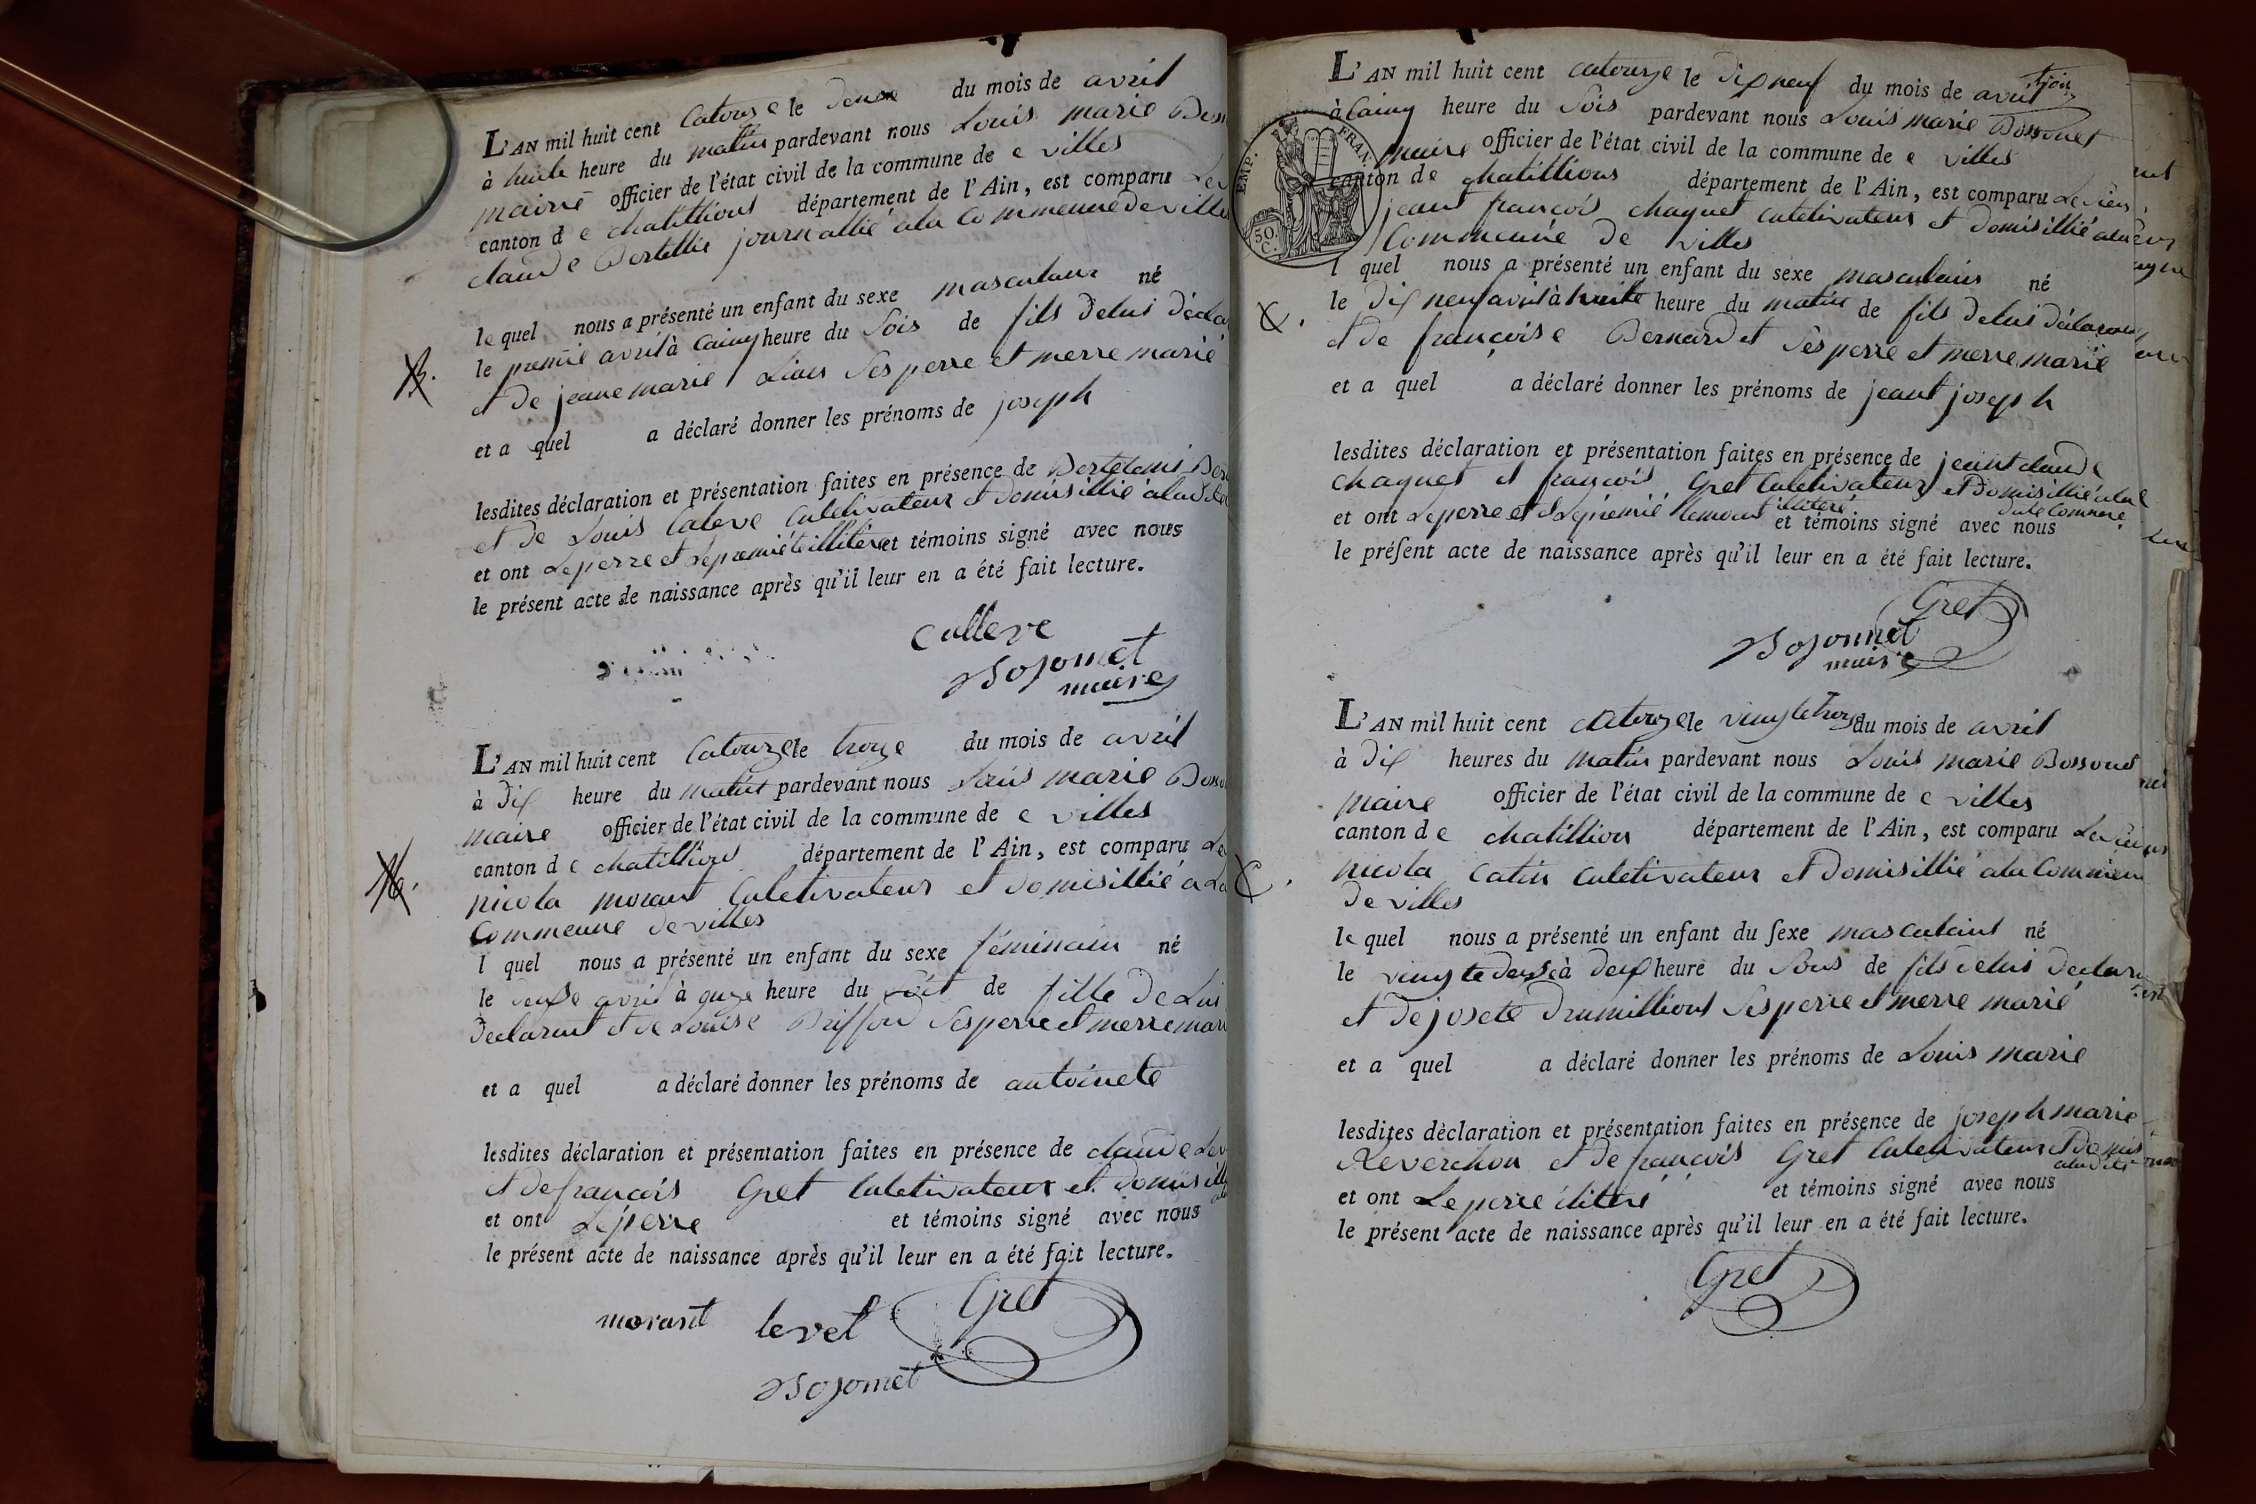 L'AN mil huit cent catouze le deux du mois de avril
à huite heure du matin pardevant nous Louis marie
mairie officier de l'état civil de la commune de e villes
canton d e chatillions département de l'Ain, est comparu
claude Bertellie journallié ala Commeune de ville
le quel nous a présenté un enfant du sexe masculain né
le premié avril à Cainq heure du Sois de fils delui
et de jeane marie Liaus Ses perre et merre marié
et a quel a déclaré donner les prénoms de joseph
lesdites déclaration et présentation faites en présence de Bertelemi
et de Louis Caleve Culetivateur et domisillié
et ont Le perre et Le premié illitéré et témoins signé avec nous
le présent acte de naissance après qu'il leur en a été fait lecture.
Calleve
Bosonnet
maire
L'AN mil huit cent Catouze le troze du mois de avril
à Dix heure du matin pardevant nous Louis marie
maire officier de l'état civil de la commune de e villes
canton d e chatillions département de l'Ain, est comparu
nicola morant Culetivateur et domisillié a La
Commeune de villes
l quel nous a présenté un enfant du sexe féminain né
le avril à onze heure du Sois de fille de Lui
Declarant et de Louise Briffod Ses perre et merre
et a quel a déclaré donner les prénoms de antoinete
lesdites déclaration et présentation faites en présence de claude
et de françois Gret Culetivateur et
et ont Le perre et témoins signé avec nous
le présent acte de naissance après qu'il leur en a été fait lecture.
morant levet Gret
Bosonnet
L'AN mil huit cent catouze le Dix neuf du mois de avril
à Cainq heure du Sois pardevant nous Louis marie Bossonet
maire officier de l'état civil de la commune de e villes
EMP. FRAN.
50. C.
canton de chatillions département de l'Ain, est comparu Le Sieur
jeant françois chaquet Culetivateur et Domisillié ala
Commeune De villes
l quel nous a présenté un enfant du sexe masculain né
le Dix neuf avril à huite heure du matin de fils delui
et de françoise Bernardet Ses perre et merre marié
et a quel a déclaré donner les prénoms de jeant joseph
lesdites déclaration et présentation faites en présence de jeant claude
chaquet et françois Gret Culetivateur et Domisillié
et ont Le perre et Le premié témoin illitéré et témoins signé avec nous
le présent acte de naissance après qu'il leur en a été fait lecture.
Gret
Bosonnet
maire
L'AN mil huit cent catouze le vingt et troze du mois de avril
à Dix heures du matin pardevant nous Louis marie Bossonet
maire officier de l'état civil de la commune de e villes
canton d e chatillion département de l'Ain, est comparu Le Sieur
nicola Catin Culetivateur et Domisillié ala Commeune
De villes
le quel nous a présenté un enfant du sexe masculaint né
le à deux heure du Sois de fils delui
et de josete Dramilliont Ses perre et merre marié
et a quel a déclaré donner les prénoms de Louis marie
lesdites déclaration et présentation faites en présence de joseph marie
Reverchon et de françois Gret Culetivateur et
et ont Le perre et témoins signé avec nous
le présent acte de naissance après qu'il leur en a été fait lecture.
Gret